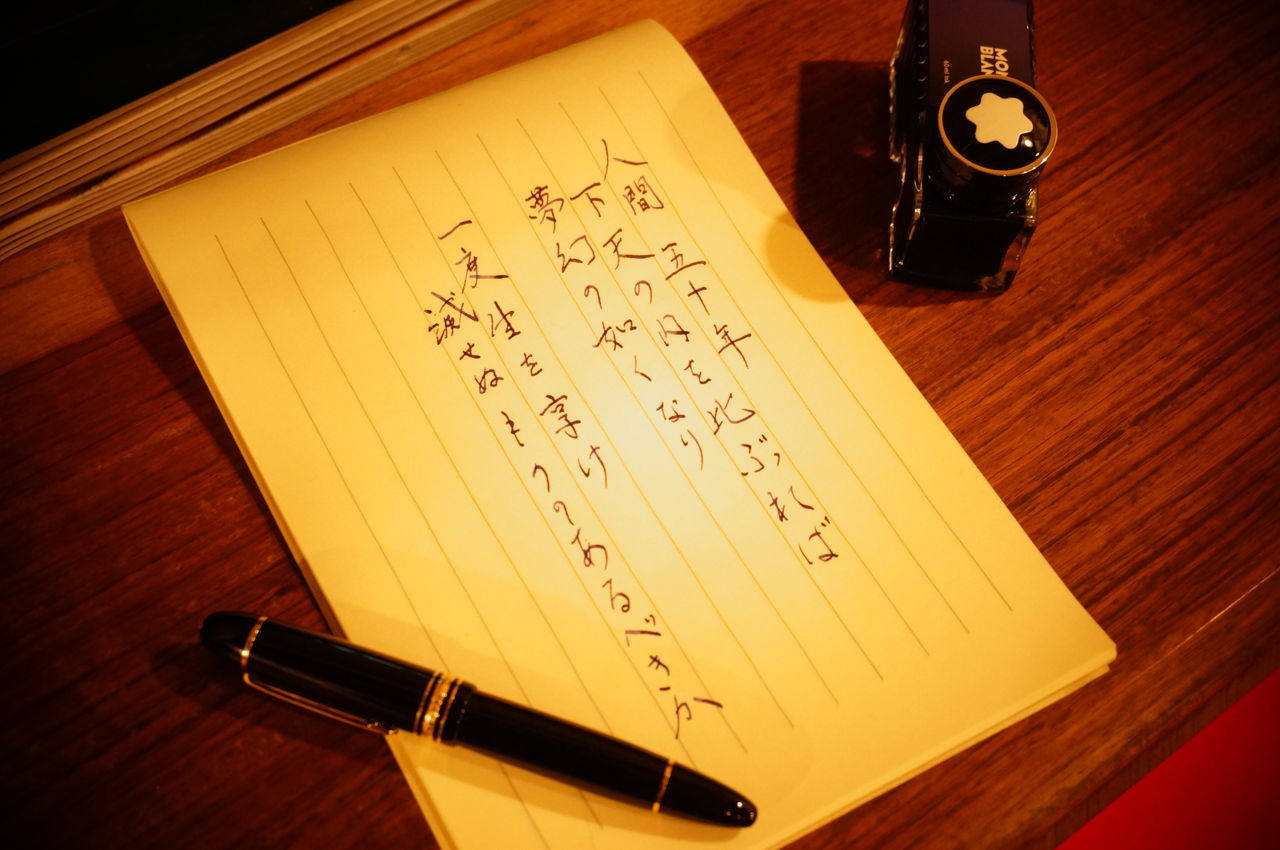 人間 五十年
下天の内を比ぶれば
夢幻の如くなり
一度生を享け
滅せぬもののあるべきか
MON
BLAN
60ml Ink